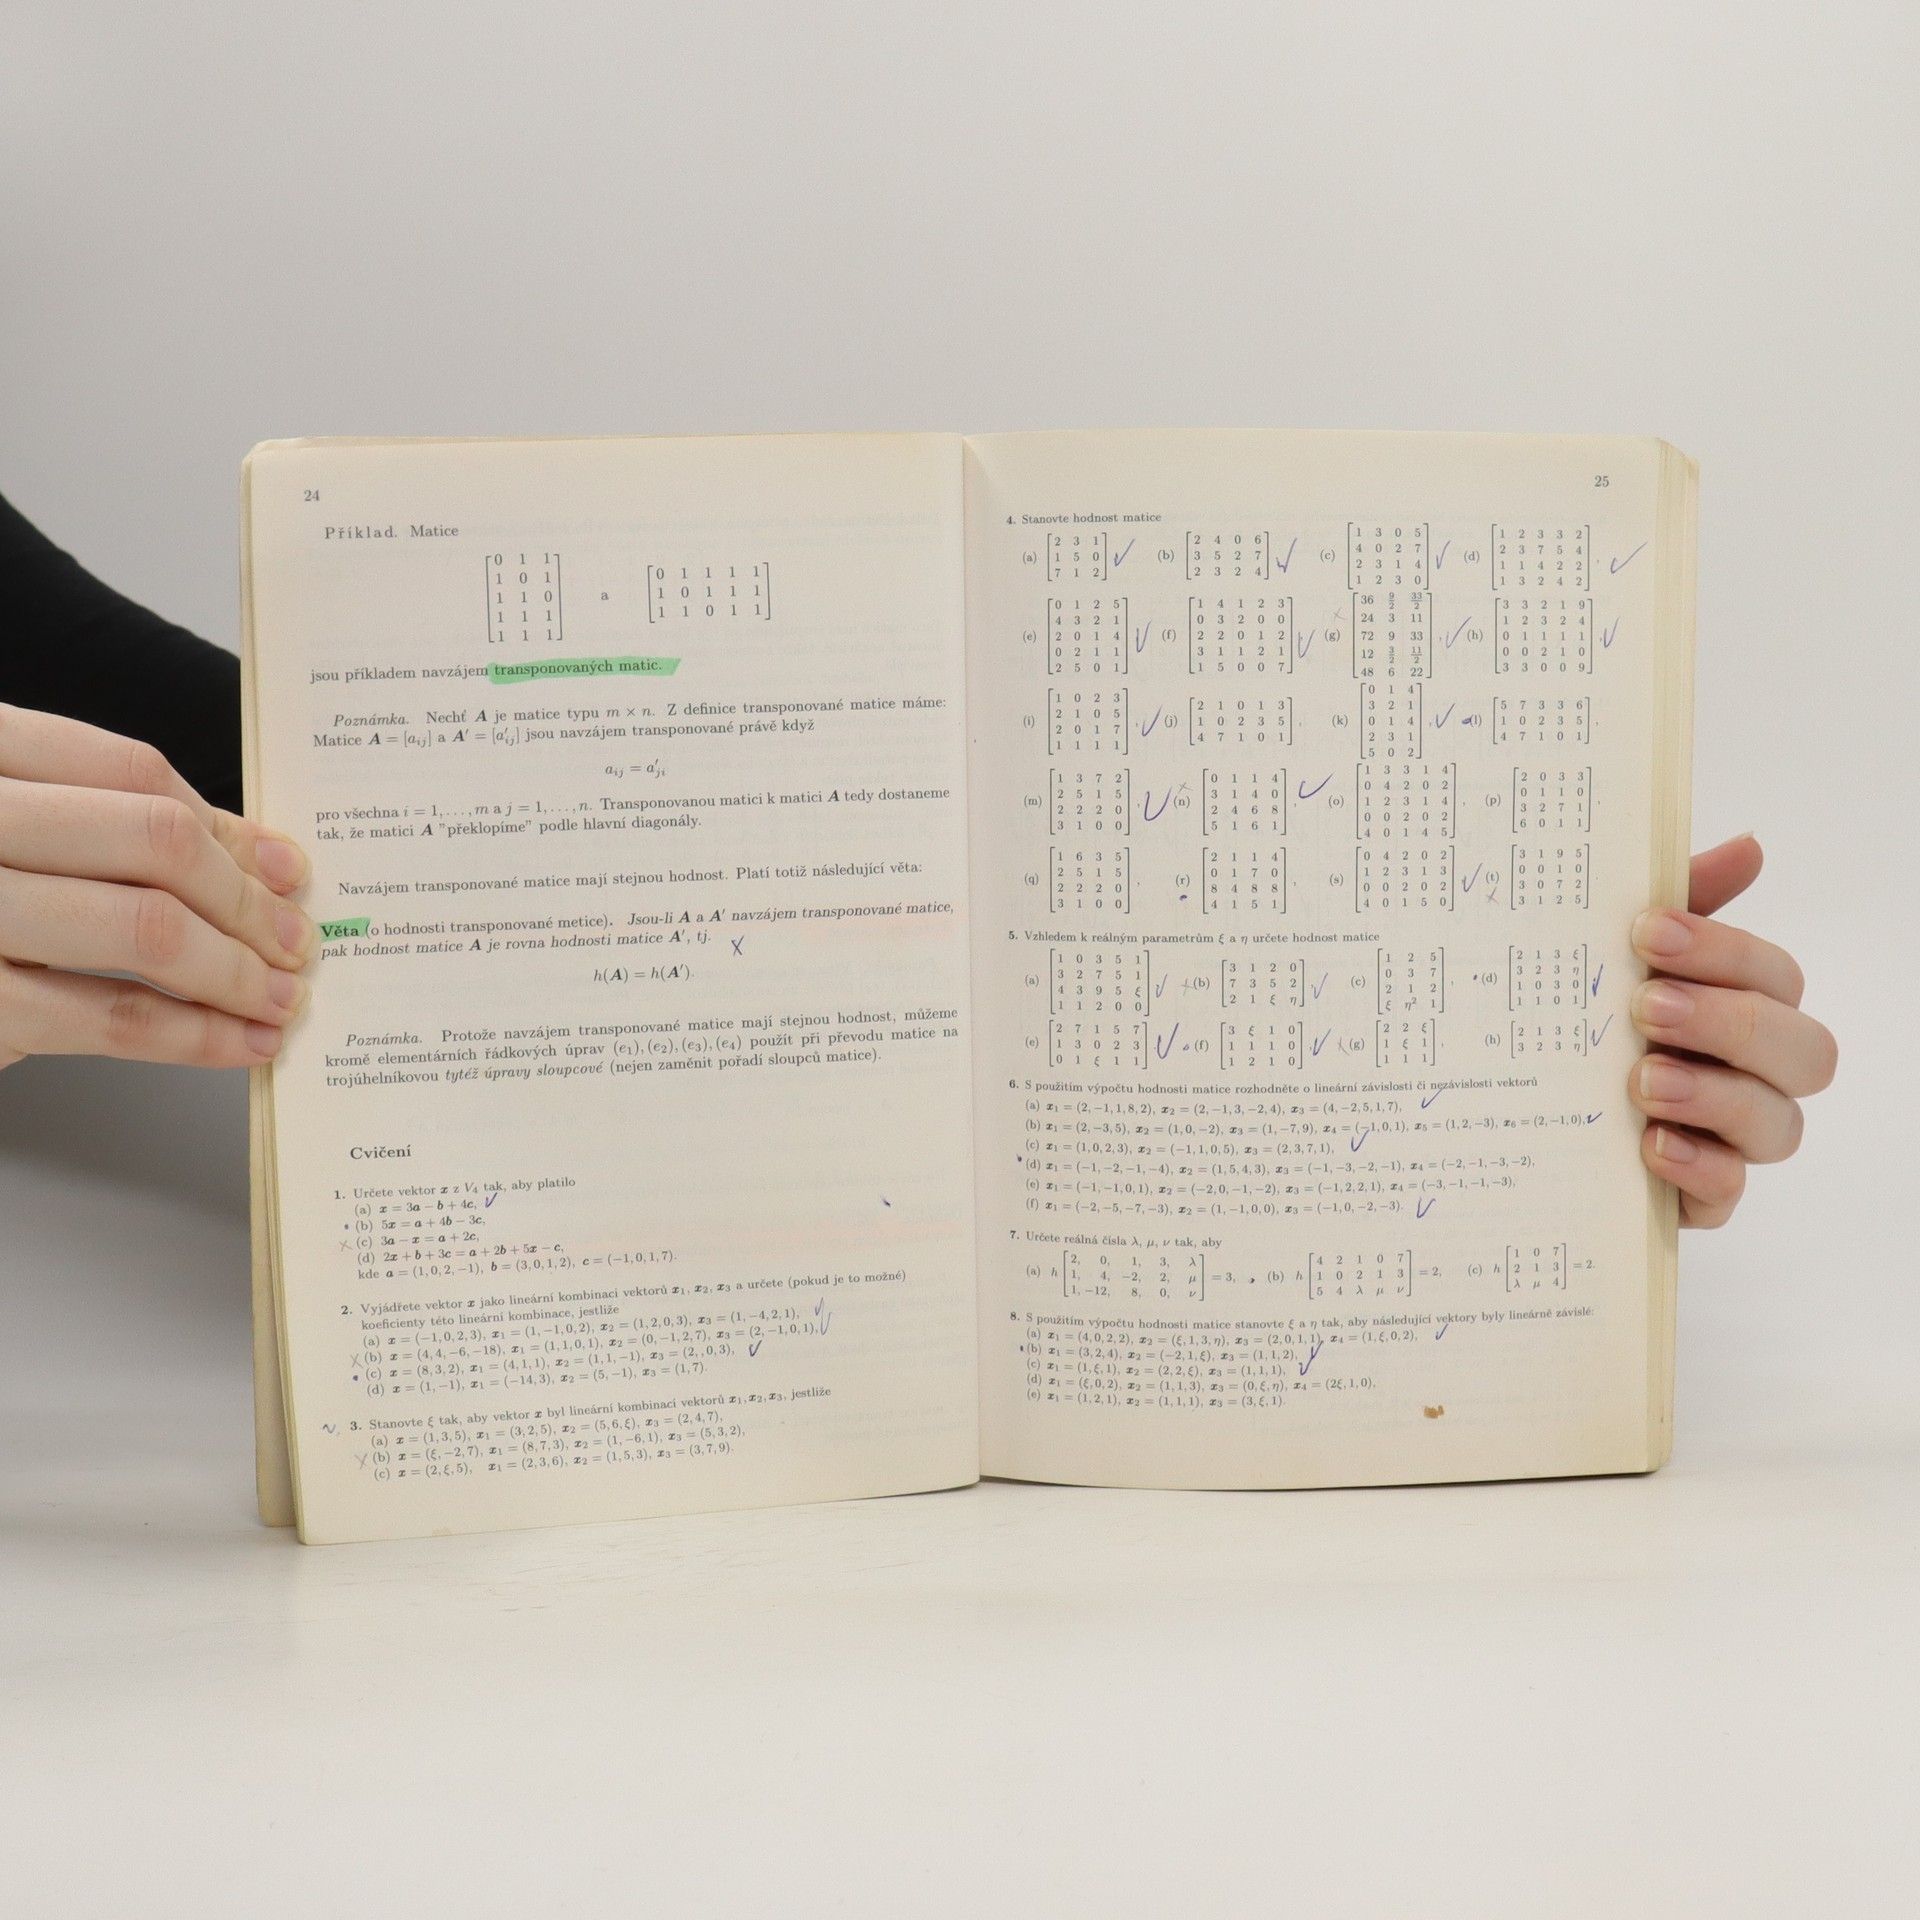 24
Příklad. Matice
0 1 1
1 0 1
1 1 0
1 1 1
1 1 1
a
0 1 1 1 1
1 0 1 1 1
1 1 0 1 1
jsou příkladem navzájem transponovaných matic.
Poznámka. Nechť A je matice typu m × n. Z definice transponované matice máme:
Matice A = [aij] a A′ = [a′ij] jsou navzájem transponované právě když
aij = a′ji
pro všechna i = 1, . . . , m a j = 1, . . . , n. Transponovanou matici k matici A tedy dostaneme
tak, že matici A ”překlopíme” podle hlavní diagonály.
Navzájem transponované matice mají stejnou hodnost. Platí totiž následující věta:
Věta (o hodnosti transponované metice). Jsou-li A a A′ navzájem transponované matice,
pak hodnost matice A je rovna hodnosti matice A′, tj.
h(A) = h(A′).
Poznámka. Protože navzájem transponované matice mají stejnou hodnost, můžeme
kromě elementárních řádkových úprav (e1), (e2), (e3), (e4) použít při převodu matice na
trojúhelníkovou tytéž úpravy sloupcové (nejen zaměnit pořadí sloupců matice).
Cvičení
1. Určete vektor x z V4 tak, aby platilo
(a) x = 3a − b + 4c,
(b) 5x = a + 4b − 3c,
(c) 3a − x = a + 2c,
(d) 2x + b + 3c = a + 2b + 5x − c,
kde a = (1, 0, 2, −1), b = (3, 0, 1, 2), c = (−1, 0, 1, 7).
2. Vyjádřete vektor x jako lineární kombinaci vektorů x1, x2, x3 a určete (pokud je to možné)
koeficienty této lineární kombinace, jestliže
(a) x = (−1, 0, 2, 3), x1 = (1, −1, 0, 2), x2 = (1, 2, 0, 3), x3 = (1, −4, 2, 1),
(b) x = (4, 4, −6, −18), x1 = (1, 1, 0, 1), x2 = (0, −1, 2, 7), x3 = (2, −1, 0, 1),
(c) x = (8, 3, 2), x1 = (4, 1, 1), x2 = (1, 1, −1), x3 = (2, , 0, 3),
(d) x = (1, −1), x1 = (−14, 3), x2 = (5, −1), x3 = (1, 7).
3. Stanovte ξ tak, aby vektor x byl lineární kombinací vektorů x1, x2, x3, jestliže
(a) x = (1, 3, 5), x1 = (3, 2, 5), x2 = (5, 6, ξ), x3 = (2, 4, 7),
(b) x = (ξ, −2, 7), x1 = (8, 7, 3), x2 = (1, −6, 1), x3 = (5, 3, 2),
(c) x = (2, ξ, 5), x1 = (2, 3, 6), x2 = (1, 5, 3), x3 = (3, 7, 9).
25
4. Stanovte hodnost matice
(a)
2 3 1
1 5 0
7 1 2
(b)
2 4 0 6
3 5 2 7
2 3 2 4
(c)
1 3 0 5
4 0 2 7
2 3 1 4
1 2 3 0
(d)
1 2 3 3 2
2 3 7 5 4
1 1 4 2 2
1 3 2 4 2
(e)
0 1 2 5
4 3 2 1
2 0 1 4
0 2 1 1
2 5 0 1
(f)
1 4 1 2 3
0 3 2 0 0
2 2 0 1 2
3 1 1 2 1
1 5 0 0 7
(g)
36 9/2 33/2
24 3 11
72 9 33
12 3/2 11/2
48 6 22
(h)
3 3 2 1 9
1 2 3 2 4
0 1 1 1 1
0 0 2 1 0
3 3 0 0 9
(i)
1 0 2 3
2 1 0 5
2 0 1 7
1 1 1 1
(j)
2 1 0 1 3
1 0 2 3 5
4 7 1 0 1
(k)
0 1 4
3 2 1
0 1 4
2 3 1
5 0 2
(l)
5 7 3 3 6
1 0 2 3 5
4 7 1 0 1
(m)
1 3 7 2
2 5 1 5
2 2 2 0
3 1 0 0
(n)
0 1 1 4
3 1 4 0
2 4 6 8
5 1 6 1
(o)
1 3 3 1 4
0 4 2 0 2
1 2 3 1 4
0 0 2 0 2
4 0 1 4 5
(p)
2 0 3 3
0 1 1 0
3 2 7 1
6 0 1 1
(q)
1 6 3 5
2 5 1 5
2 2 2 0
3 1 0 0
(r)
2 1 1 4
0 1 7 0
8 4 8 8
4 1 5 1
(s)
0 4 2 0 2
1 2 3 1 3
0 0 2 0 2
4 0 1 5 0
(t)
3 1 9 5
0 0 1 0
3 0 7 2
3 1 2 5
5. Vzhledem k reálným parametrům ξ a η určete hodnost matice
(a)
1 0 3 5 1
3 2 7 5 1
4 3 9 5 ξ
1 1 2 0 0
(b)
3 1 2 0
7 3 5 2
2 1 ξ η
(c)
1 2 5
0 3 7
2 1 2
ξ η² 1
(d)
2 1 3 ξ
3 2 3 η
1 0 3 0
1 1 0 1
(e)
2 7 1 5 7
1 3 0 2 3
0 1 ξ 1 1
(f)
3 ξ 1 0
1 1 1 0
1 2 1 0
(g)
2 2 ξ
1 ξ 1
1 1 1
(h)
2 1 3 ξ
3 2 3 η
6. S použitím výpočtu hodnosti matice rozhodněte o lineární závislosti či nezávislosti vektorů
(a) x1 = (2, −1, 1, 8, 2), x2 = (2, −1, 3, −2, 4), x3 = (4, −2, 5, 1, 7),
(b) x1 = (2, −3, 5), x2 = (1, 0, −2), x3 = (1, −7, 9), x4 = (−1, 0, 1), x5 = (1, 2, −3), x6 = (2, −1, 0),
(c) x1 = (1, 0, 2, 3), x2 = (−1, 1, 0, 5), x3 = (2, 3, 7, 1),
(d) x1 = (−1, −2, −1, −4), x2 = (1, 5, 4, 3), x3 = (−1, −3, −2, −1), x4 = (−2, −1, −3, −2),
(e) x1 = (−1, −1, 0, 1), x2 = (−2, 0, −1, −2), x3 = (−1, 2, 2, 1), x4 = (−3, −1, −1, −3),
(f) x1 = (−2, −5, −7, −3), x2 = (1, −1, 0, 0), x3 = (−1, 0, −2, −3).
7. Určete reálná čísla λ, μ, ν tak, aby
(a) h
2, 0, 1, 3, λ
1, 4, −2, 2, μ
1, −12, 8, 0, ν
= 3,
(b) h
4 2 1 0 7
1 0 2 1 3
5 4 λ μ ν
= 2,
(c) h
1 0 7
2 1 3
λ μ 4
= 2.
8. S použitím výpočtu hodnosti matice stanovte ξ a η tak, aby následující vektory byly lineárně závislé:
(a) x1 = (4, 0, 2, 2), x2 = (ξ, 1, 3, η), x3 = (2, 0, 1, 1), x4 = (1, ξ, 0, 2),
(b) x1 = (3, 2, 4), x2 = (−2, 1, ξ), x3 = (1, 1, 2),
(c) x1 = (1, ξ, 1), x2 = (2, 2, ξ), x3 = (1, 1, 1),
(d) x1 = (ξ, 0, 2), x2 = (1, 1, 3), x3 = (0, ξ, η), x4 = (2ξ, 1, 0),
(e) x1 = (1, 2, 1), x2 = (1, 1, 1), x3 = (3, ξ, 1).